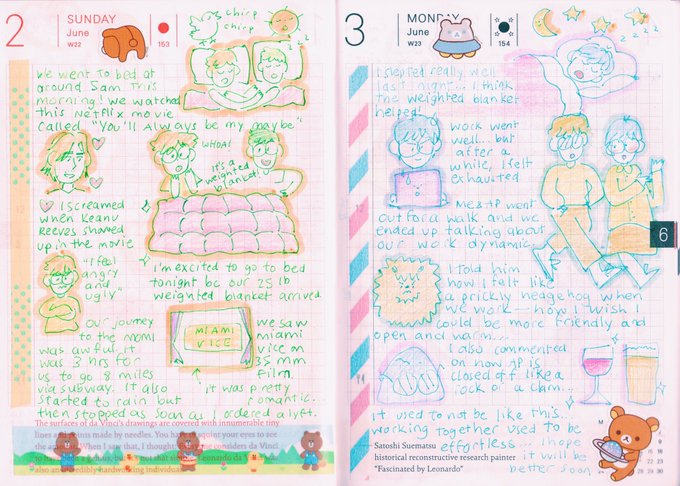 2
SUNDAY
June
W22
153
chirp
chirp
z z z
We went to bed at
around 5am this
morning! We watched
this Netflix movie
called "You'll Always be my maybe"
WHOA!
it's a
weighted
blanket!
I screamed
when Keanu
Reeves showed
up in the movie
"I feel
angry
and
ugly"
I'm excited to go to bed
tonight bc our 25 lb
weighted blanket arrived
Our journey
to the MoMI
was awful. it
was 3 hrs for
us to go 8 miles
via subway. It also
started to rain but
then stopped as soon as I ordered a lyft.
MIAMI
VICE
we saw
miami
vice on
35 mm
film.
it was pretty
romantic.
The surfaces of da Vinci's drawings are covered with innumerable tiny
lines
made by needles. You
squint your eyes to see
the
When I saw that, I thought
considers da Vinci
Leonardo da
was
also
incredibly hardworking individual
3
MONDAY
June
W23
154
z z z z
I slept really well
last night... I think
the weighted blanket
helped!
Work went
well... but
after a
while, I felt
exhausted
Me & JP went
out for a walk and we
ended up talking about
our work dynamic
6
I told him
how I felt like
a prickly hedgehog when
we work — how I wish I
could be more friendly and
open and warm...
I also commented
on how JP is
closed off like a
rock or a clam...
it used to not be like this.
working together used to be
effortless. I hope
it will be
better soon
Satoshi Suematsu
historical reconstructive research painter
"Fascinated by Leonardo"